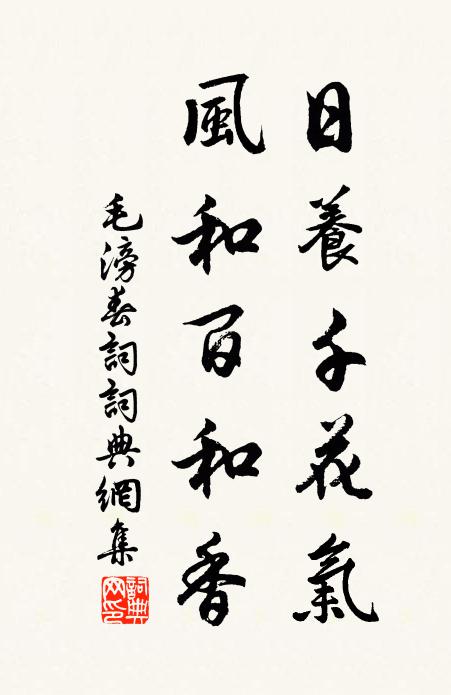 日養千花氣
風和百和香
毛滂春詞詞典網集
詞典
网印